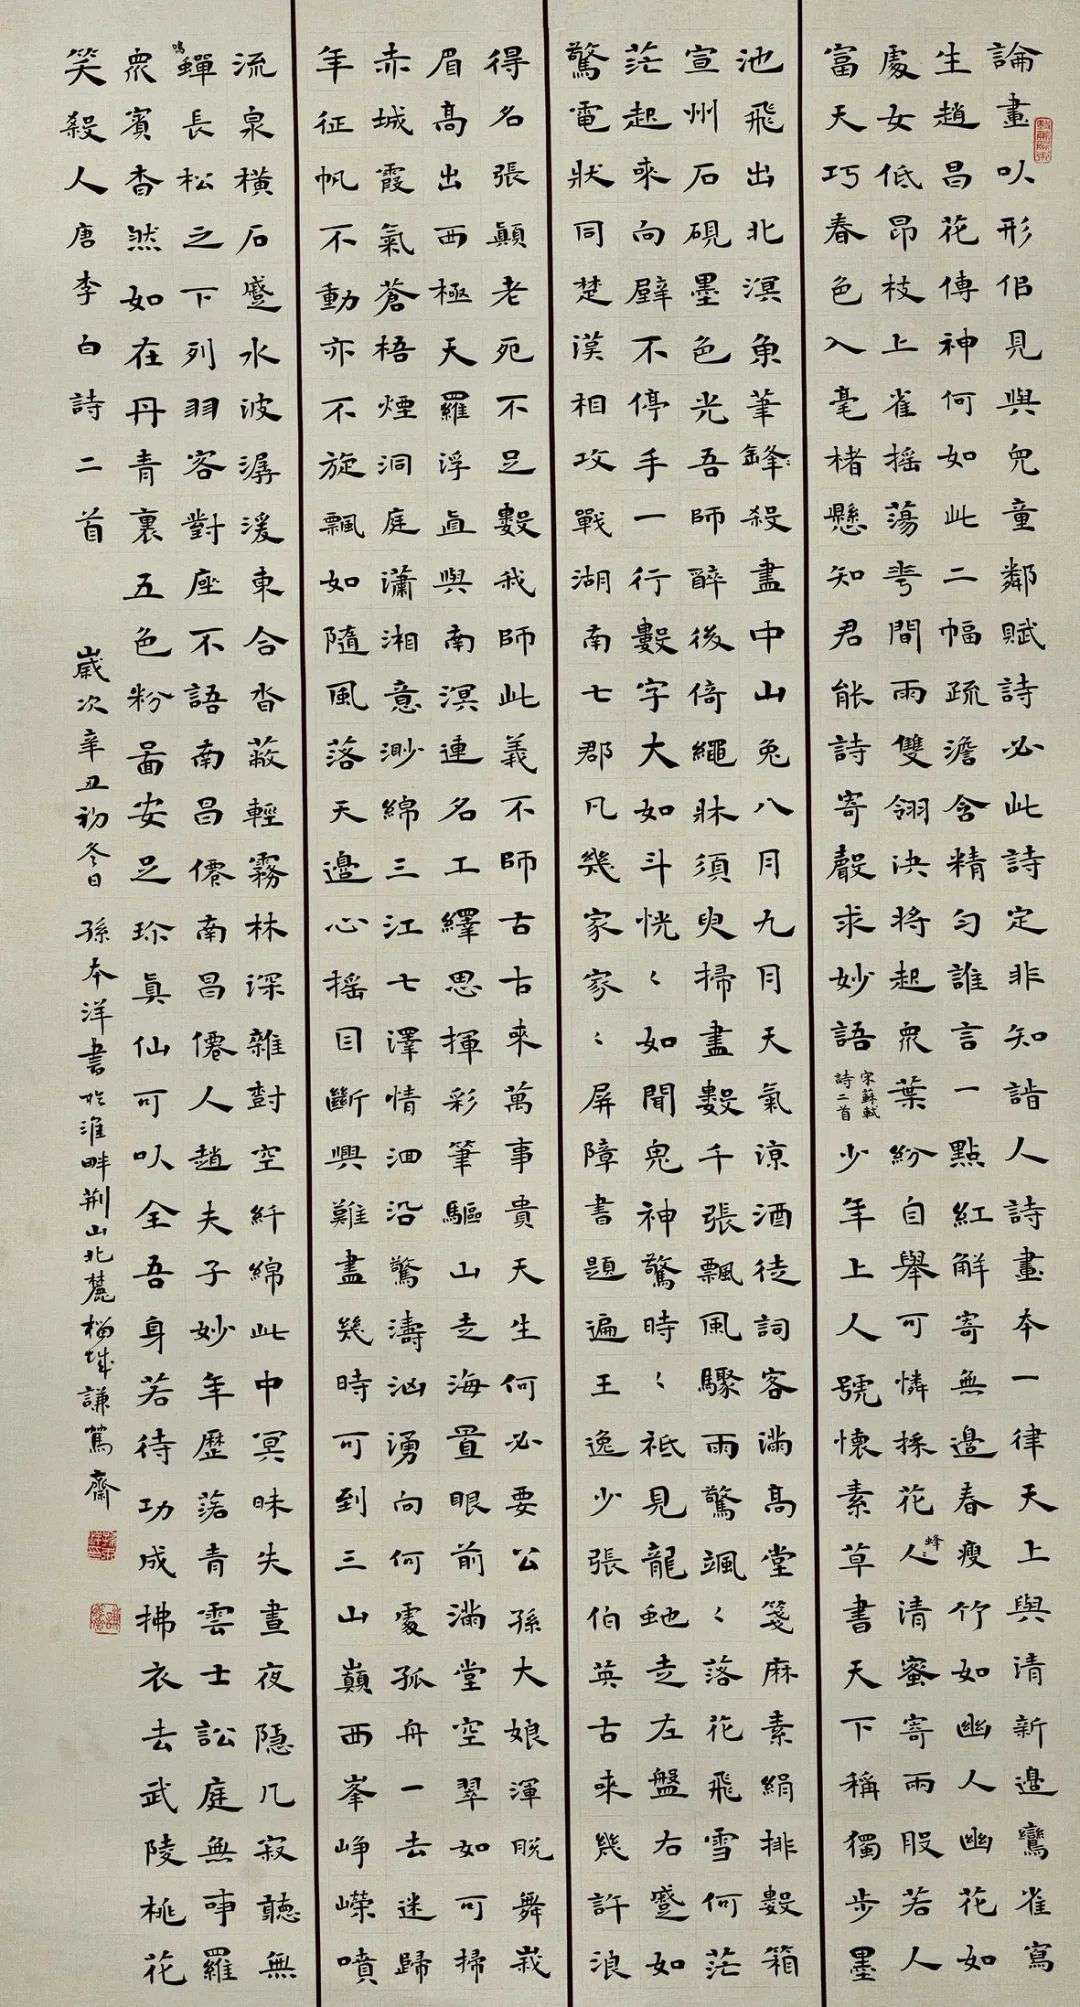 論畫以形佀見與兒童鄰賦詩必此詩定非知詣人詩畫本一律天上與清新邊鸞雀寫
生趙昌花傳神何如此二幅疏澹含精勻誰言一點紅解寄無邊春瘦竹如幽人幽花如
處女低昂枝上雀搖蕩花間雨雙翎決將起衆葉紛自舉可憐採花人蜂清蜜寄兩股若人
富天巧春色入毫楮懸知君能詩寄聲求妙語 宋蘇軾詩二首 少年上人號懷素草書天下稱獨步墨
池飛出北溟魚筆鋒殺盡中山兔八月九月天氣涼酒徒詞客滿高堂箋麻素絹排數箱
宣州石硯墨色光吾師醉後倚繩牀須臾掃盡數千張飄風驟雨驚颯〻落花飛雪何茫
茫起來向壁不停手一行數字大如斗恍〻如聞鬼神驚時〻祗見龍虵走左盤右蹙如
驚電狀同楚漢相攻戰湖南七郡凡幾家家〻屏障書題遍王逸少張伯英古來幾許浪
得名張顛老死不足數我師此義不師古古來萬事貴天生何必要公孫大娘渾脫舞峩
眉高出西極天羅浮直與南溟連名工繹思揮彩筆驅山走海置眼前滿堂空翠如可掃
赤城霞氣蒼梧煙洞庭瀟湘意渺綿三江七澤情洄沿驚濤洶湧向何處孤舟一去迷歸
年征帆不動亦不旋飄如隨風落天邊心搖目斷興難盡幾時可到三山巔西峯崢嶸噴
流泉橫石蹙水波潺湲東合沓蔽輕霧林深雜樹空纤綿此中冥昧失晝夜隱几寂聽無
鳴蟬長松之下列羽客對座不語南昌僊南昌僊人趙夫子妙年歷落青雲士訟庭無事羅
衆賓杳然如在丹青裏五色粉圖安足珍真仙可以全吾身若待功成拂衣去武陵桃花
笑殺人唐李白詩二首 歲次辛丑初冬日孫本洋書於淮畔荆山北麓榴城謙篤齋